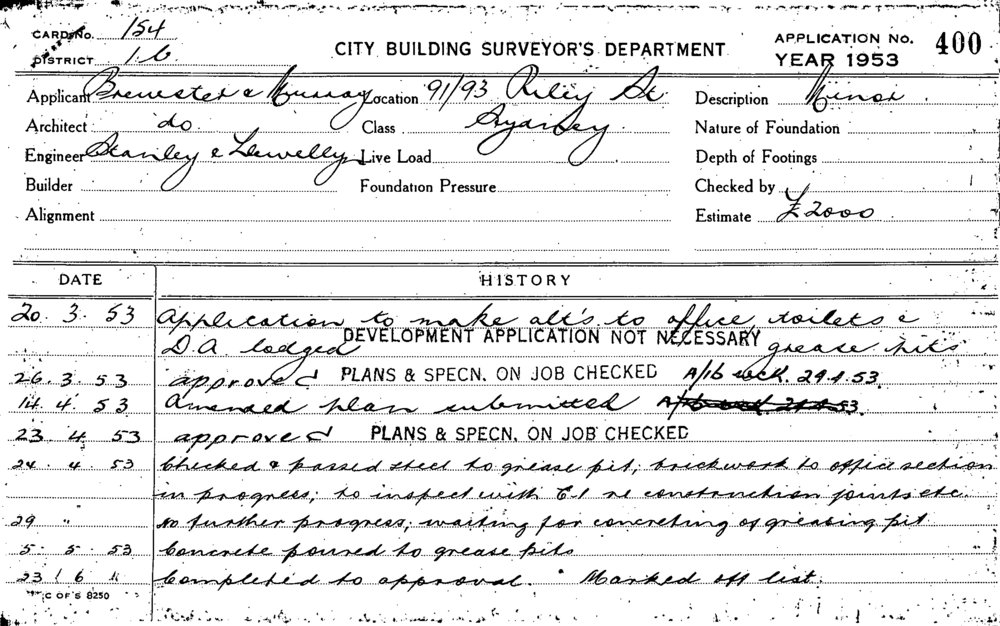 CARD No. 154
DISTRICT 16
CITY BUILDING SURVEYOR'S DEPARTMENT
APPLICATION No. 400
YEAR 1953
Applicant Brewster & Murray Location 91/93 Riley St Description Minor
Architect do Class Sydney Nature of Foundation
Engineer Stanley & Llewellyn Live Load Depth of Footings
Builder Foundation Pressure Checked by
Alignment Estimate £2000
DATE HISTORY
20. 3. 53 Application to make alt's to office, toilets &
D.A. lodged DEVELOPMENT APPLICATION NOT NECESSARY grease pits
26. 3. 53 approved PLANS & SPECN. ON JOB CHECKED A/16 29.4.53.
14. 4. 53 Amended plan submitted
23. 4. 53 approved PLANS & SPECN. ON JOB CHECKED
24. 4. 53 Checked & passed steel to grease pit; brickwork to office section
in progress; to inspect with E.I. re construction joints etc.
29 " No further progress; waiting for concreting of greasing pit
5. 5. 53 Concrete poured to grease pits
23 6 " Completed to approval. Marked off list.
C OF S 8250